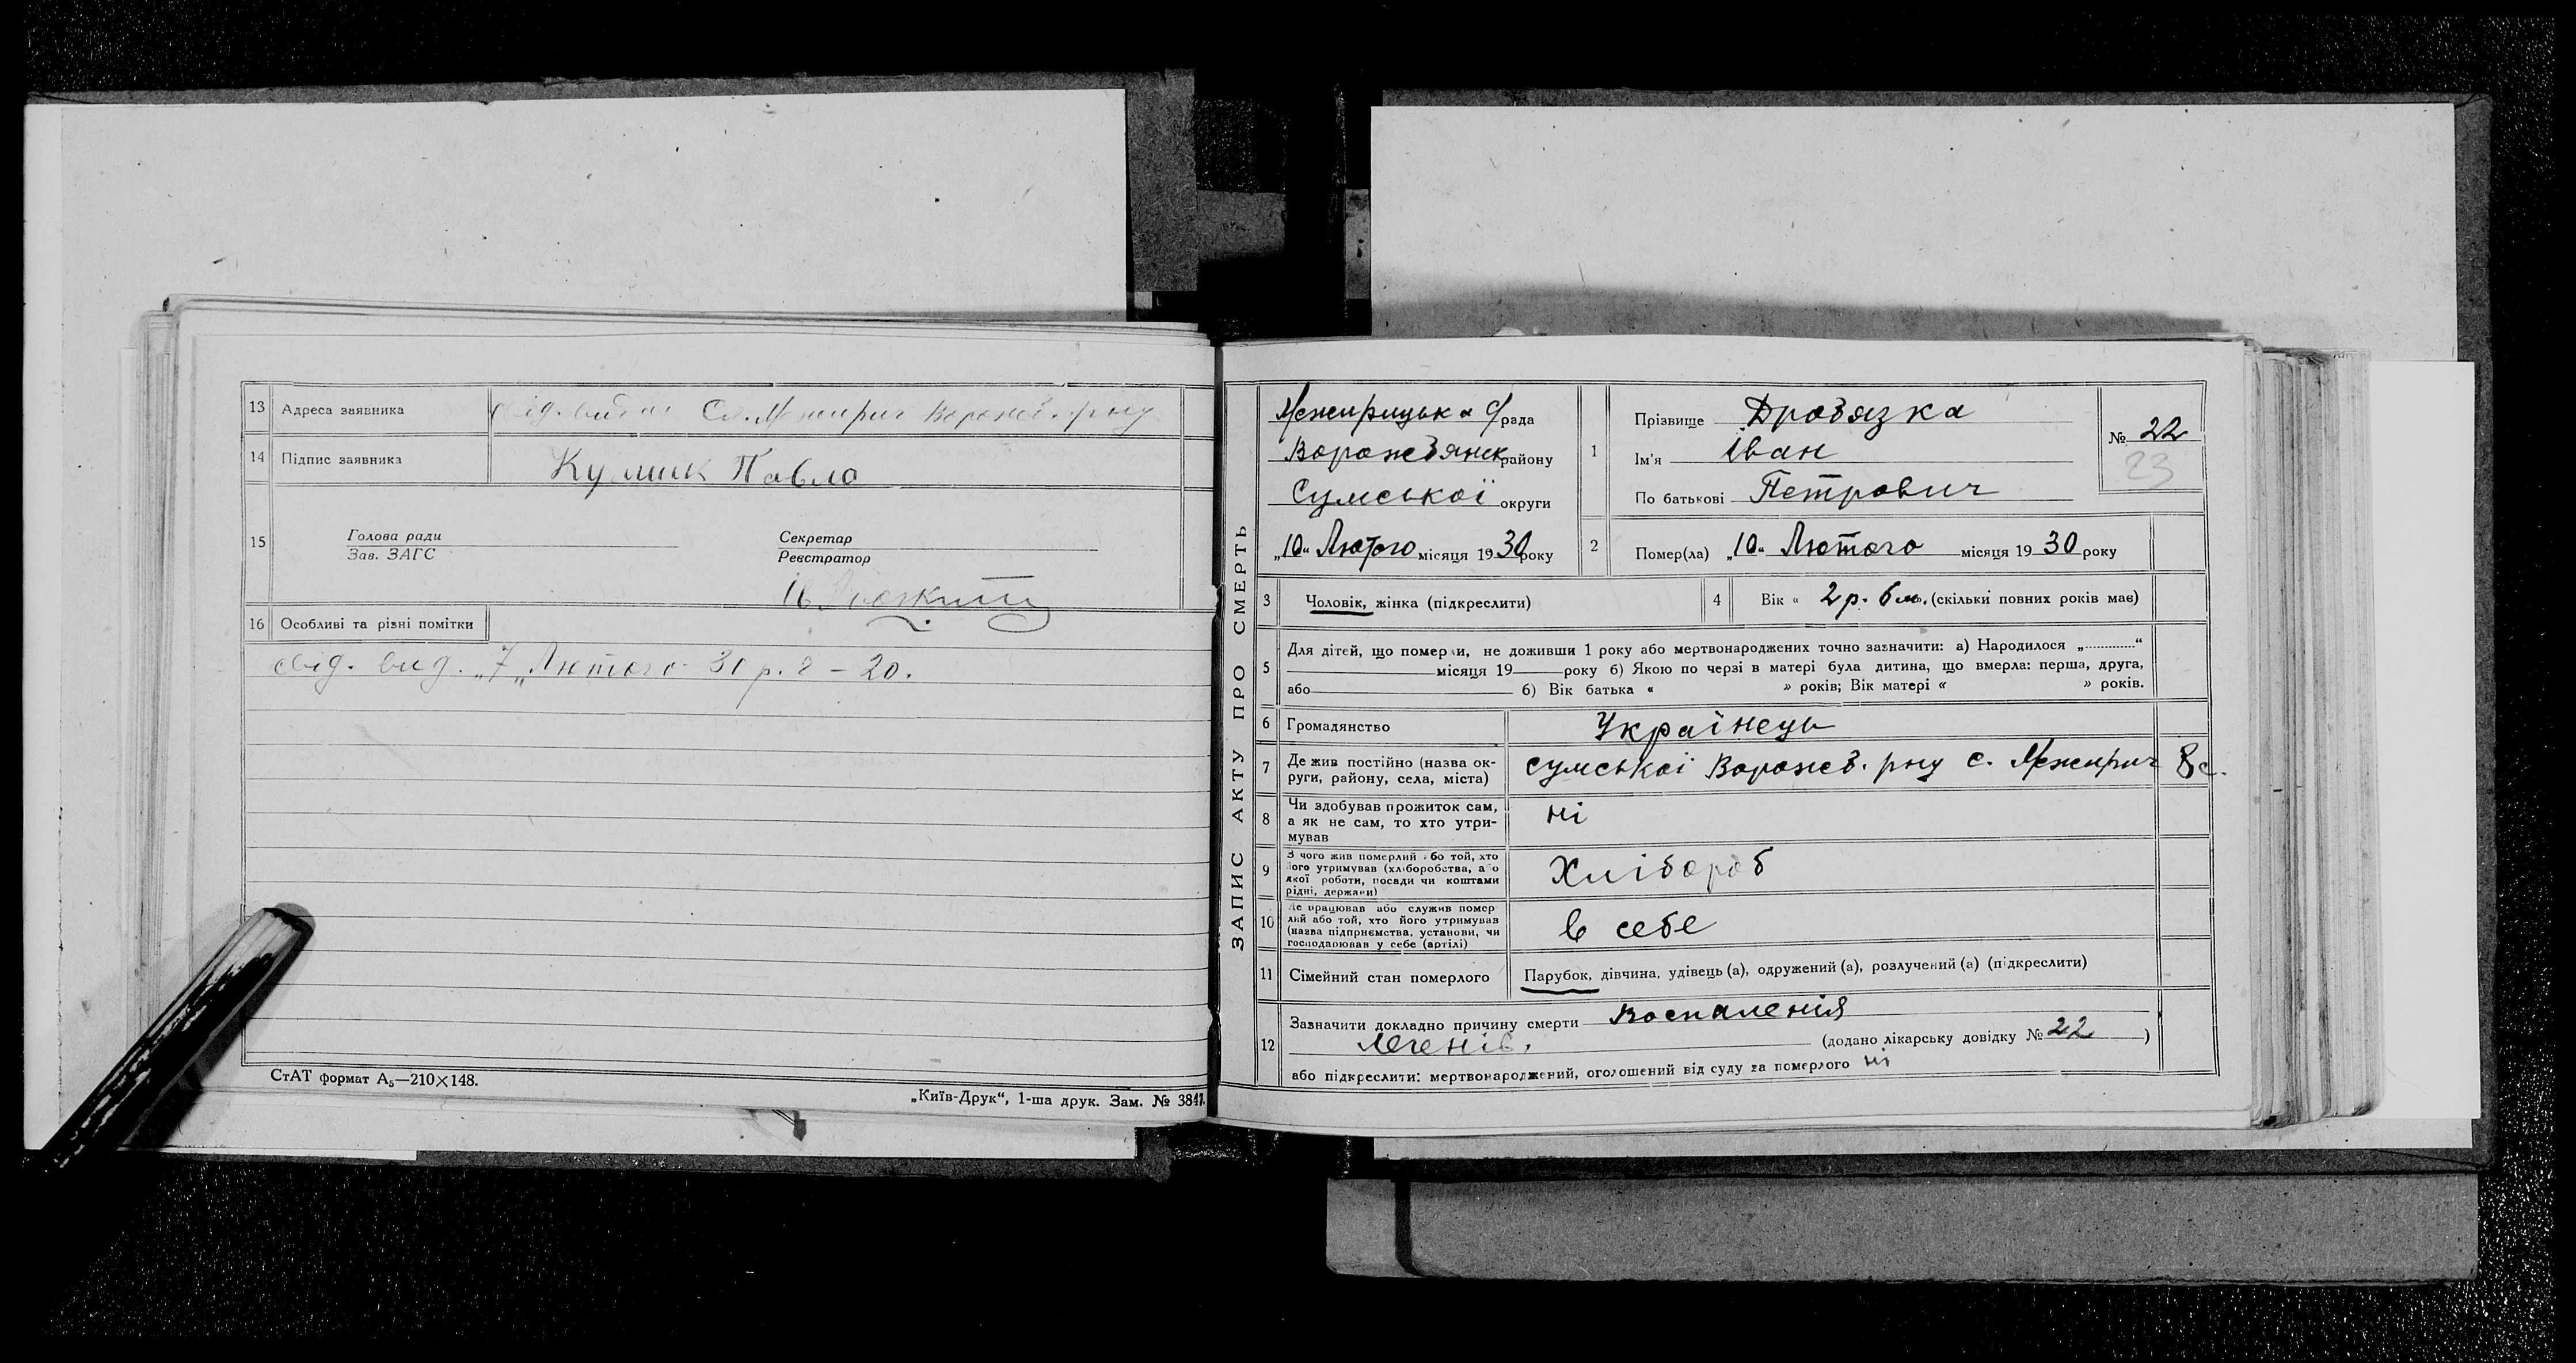 13 Адреса заявника Сл. Межирич Ворожб. р-ну
14 Підпис заявника Кулик Павло
15
Голова ради
Зав. ЗАГС
Секретар
Реєстратор
16 Особливі та різні помітки
свід. вид. „7„ Лютого 31 р. – 20.
СтАТ формат А₅—210×148.
„Київ-Друк“, 1-ша друк. Зам. № 3847.
ЗАПИС АКТУ ПРО СМЕРТЬ
Межирицька рада
Ворожбянск району
Сумської округи
„10„ Лютого місяця 1930 року
1 Прізвище Дровязка
Ім'я Іван
По батькові Петрович
№ 22
23
2 Помер(ла) „10„ Лютого місяця 1930 року
3 Чоловік, жінка (підкреслити)
4 Вік « 2 р. 6 м. (скільки повних років має)
5 Для дітей, що померли, не доживши 1 року або мертвонароджених точно зазначити: а) Народилося „............“
місяця 19 року б) Якою по черзі в матері була дитина, що вмерла: перша, друга,
або б) Вік батька « » років; Вік матері « » років.
6 Громадянство Українець
7 Де жив постійно (назва ок-
руги, району, села, міста) Сумської Ворожб. р-ну с. Межирич 8с.
8 Чи здобував прожиток сам,
а як не сам, то хто утри-
мував ні
9 З чого жив померлий або той, хто
його утримував (хліборобства, або
якої роботи, посади чи коштами
рідні, держави) Хлібороб
10 Де працював або служив помер
лий або той, хто його утримував
(назва підприємства, установи, чи
господарював у себе (артілі) в себе
11 Сімейний стан померлого Парубок, дівчина, удівець (а), одружений (а), розлучений (а) (підкреслити)
12 Зазначити докладно причину смерти Воспаленія
легенів. (додано лікарську довідку № 22)
або підкреслити: мертвонароджений, оголошений від суду за померлого ні